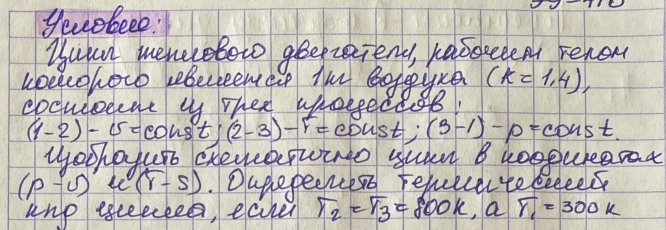 Условие:
Цикл теплового двигателя, рабочим телом
которого является 1 кг воздуха (k = 1,4),
состоит из трех процессов:
(1-2) - υ = const; (2-3) - T = const; (3-1) - p = const.
Изобразить схематично цикл в координатах
(p - υ) и (T - s). Определить термический
кпд цикла, если T₂ = T₃ = 800 К, а T₁ = 300 К